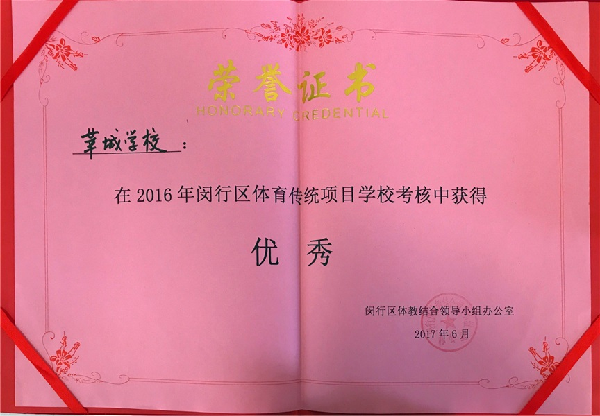 荣誉证书
HONORARY CREDENTIAL
莘城学校：
在 2016 年闵行区体育传统项目学校考核中获得
优秀
闵行区体教结合领导小组办公室
2017 年 6 月